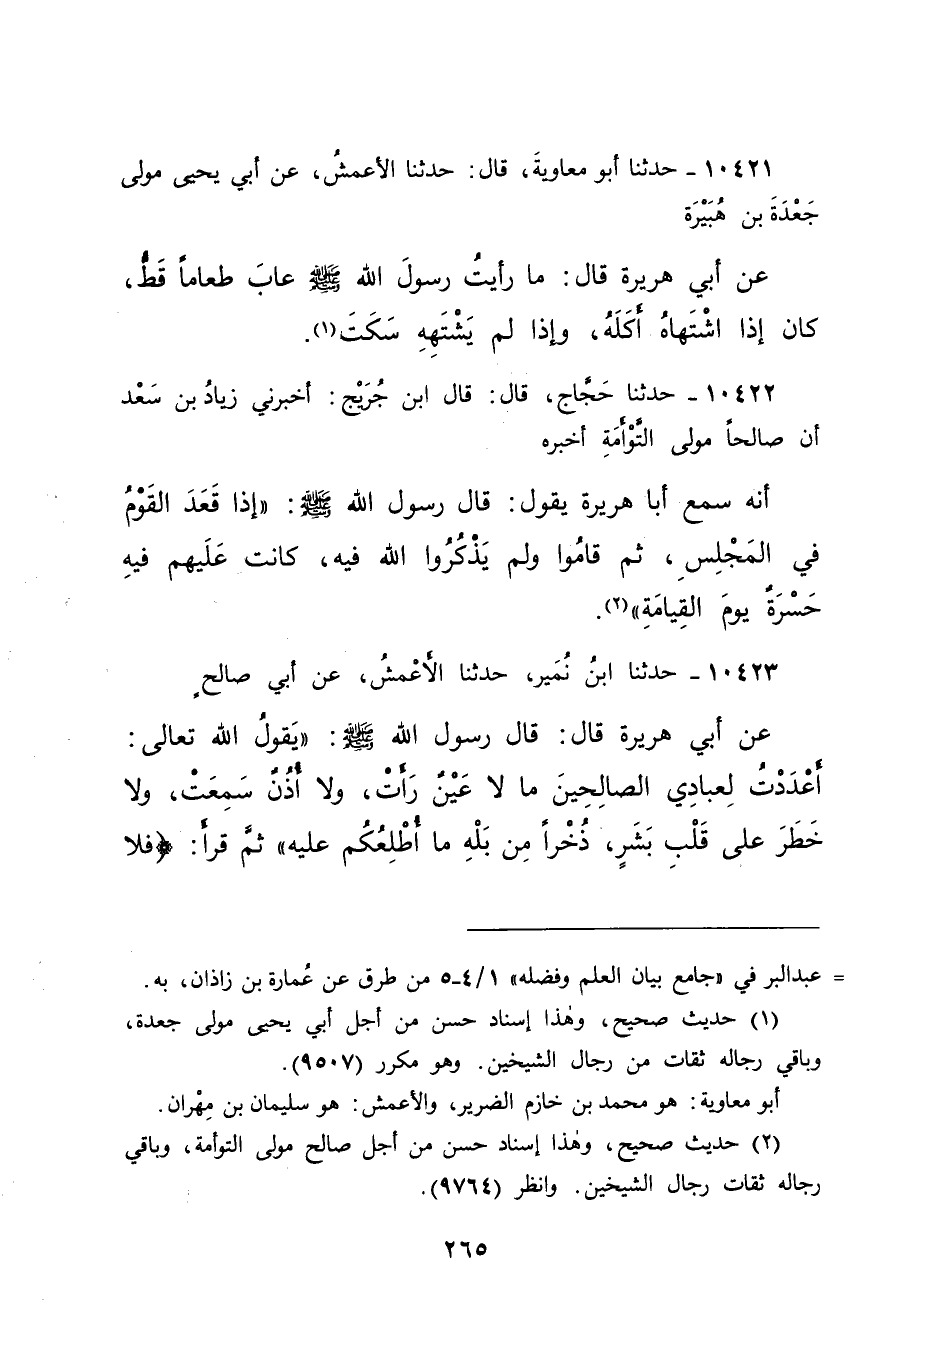 ١٠٤٢١ - حدثنا أبو معاويةَ، قال: حدثنا الأعمشُ، عن أبي يحيى مولى
جَعْدَةَ بن هُبَيْرَة
عن أبي هريرة قال: ما رأيتُ رسولَ الله ﷺ عابَ طعاماً قَطُّ،
كان إذا اشْتَهاهُ أَكَلَهُ، وإذا لم يَشْتَهِهِ سَكَتَ(١).
١٠٤٢٢ - حدثنا حَجَّاج، قال: قال ابن جُرَيْج: أخبرني زيادُ بن سَعْد
أن صالحاً مولى التَّوْأَمَةِ أخبره
أنه سمع أبا هريرة يقول: قال رسول الله ﷺ: «إذا قَعَدَ القَوْمُ
في المَجْلِسِ، ثم قامُوا ولم يَذْكُرُوا الله فيه، كانت عَلَيهم فيهِ
حَسْرَةً يومَ القِيامَةِ»(٢).
١٠٤٢٣ - حدثنا ابنُ نُمَير، حدثنا الأَعْمشُ، عن أبي صالحٍ
عن أبي هريرة قال: قال رسول الله ﷺ: «يَقولُ الله تعالى:
أَعْدَدْتُ لِعبادِي الصالِحِينَ ما لا عَيْنٌ رَأَتْ، ولا أُذُنٌ سَمِعَتْ، ولا
خَطَرَ على قَلْبِ بَشَرٍ، ذُخْراً مِن بَلْهِ ما أُطْلِعُكُم عليه» ثمَّ قرأَ: ﴿فلا
= عبدالبر في «جامع بيان العلم وفضله» ٤/١-٥ من طرق عن عُمارة بن زاذان، به.
(١) حديث صحيح، وهٰذا إسناد حسن من أجل أبي يحيى مولى جعدة،
وباقي رجاله ثقات من رجال الشيخين. وهو مكرر (٩٥٠٧).
أبو معاوية: هو محمد بن خازم الضرير، والأعمش: هو سليمان بن مِهْران.
(٢) حديث صحيح، وهٰذا إسناد حسن من أجل صالح مولى التوأمة، وباقي
رجاله ثقات رجال الشيخين. وانظر (٩٧٦٤).
٢٦٥